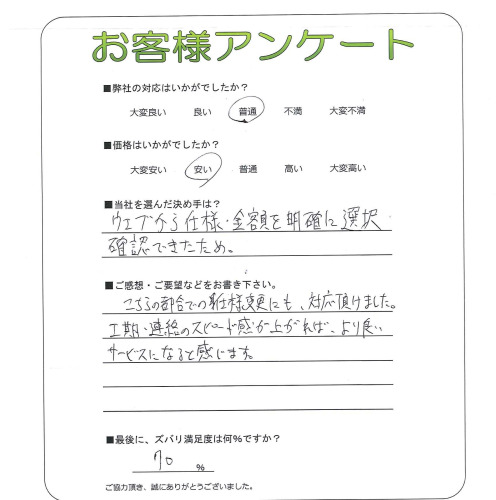 お客様アンケート
■弊社の対応はいかがでしたか？
大変良い 良い 普通 不満 大変不満
■価格はいかがでしたか？
大変安い 安い 普通 高い 大変高い
■当社を選んだ決め手は？
ウェブから仕様・金額を明確に選択
確認できたため。
■ご感想・ご要望などをお書き下さい。
こちらの都合での仕様変更にも、対応頂けました。
工期・連絡のスピード感が上がれば、より良い
サービスになると感じます。
■最後に、ズバリ満足度は何%ですか？
70 %
ご協力頂き、誠にありがとうございました。